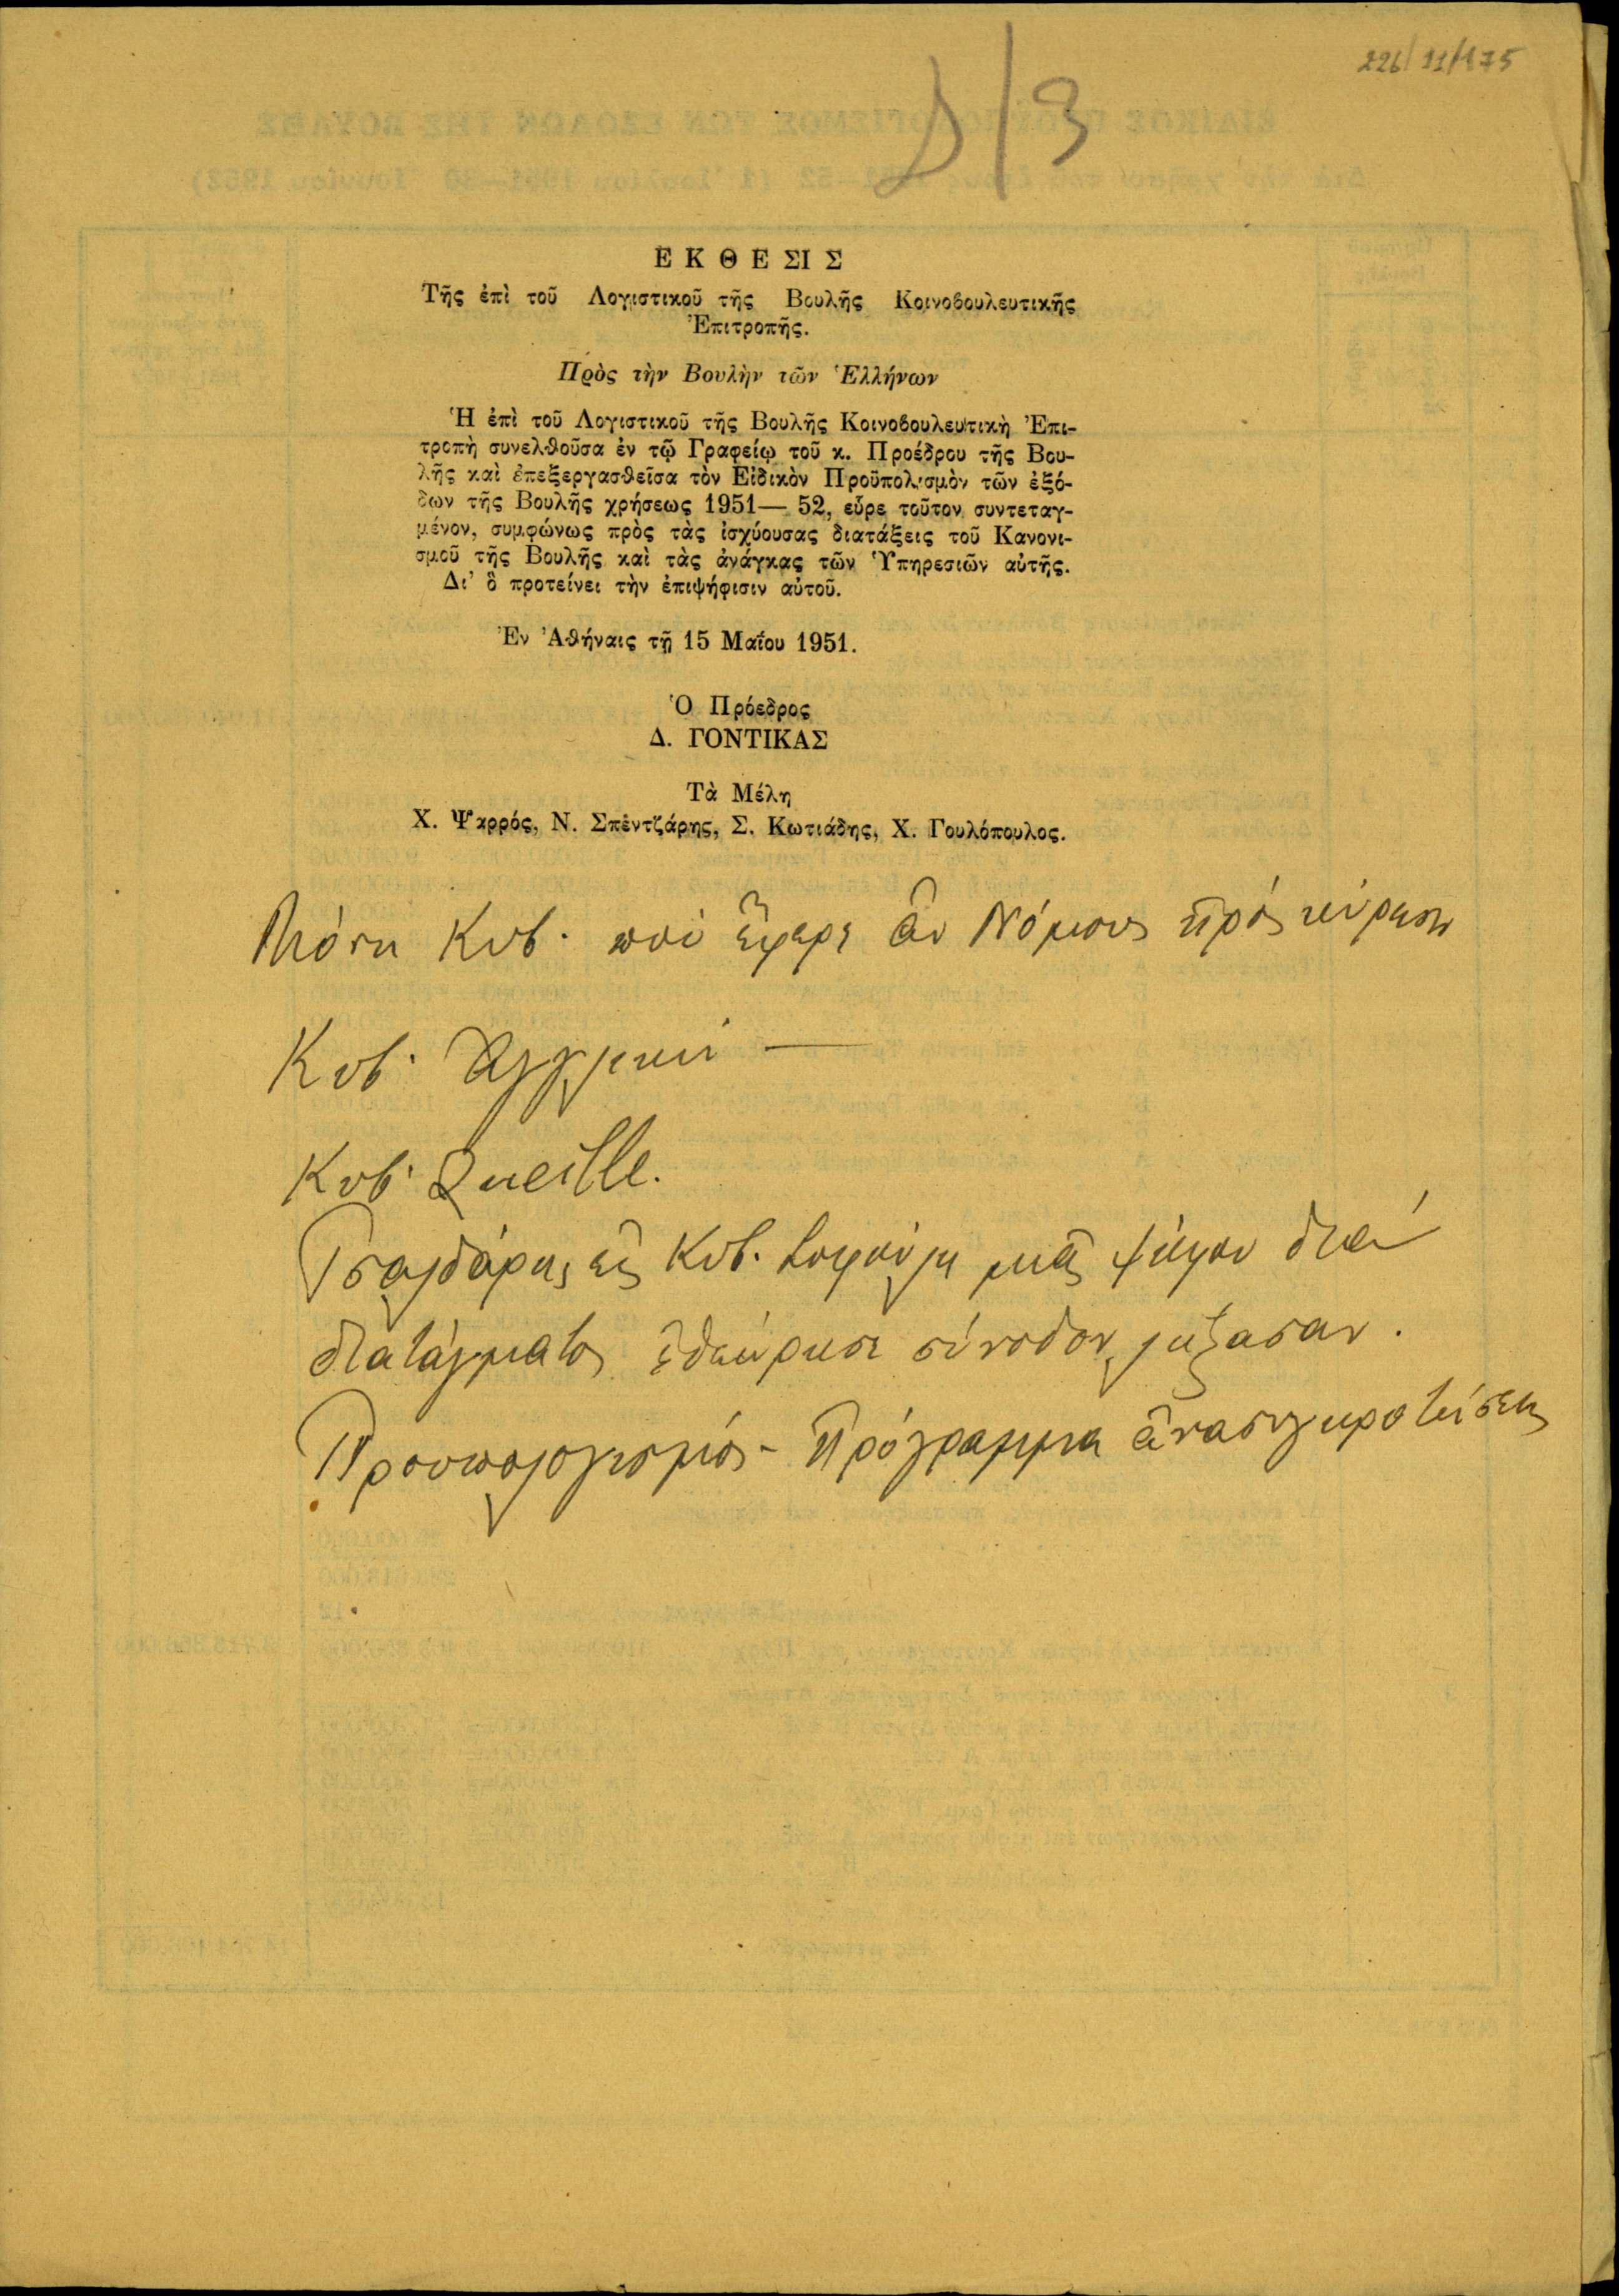 226/11/175
Δ/3
Ε Κ Θ Ε ΣΙ Σ
Τῆς ἐπὶ τοῦ Λογιστικοῦ τῆς Βουλῆς Κοινοβουλευτικῆς
Ἐπιτροπῆς.
Πρὸς τὴν Βουλὴν τῶν Ἑλλήνων
Ἡ ἐπὶ τοῦ Λογιστικοῦ τῆς Βουλῆς Κοινοβουλευτικὴ Ἐπι-
τροπὴ συνελθοῦσα ἐν τῷ Γραφείῳ τοῦ κ. Προέδρου τῆς Βου-
λῆς καὶ ἐπεξεργασθεῖσα τὸν Εἰδικὸν Προϋπολισμὸν τῶν ἐξό-
δων τῆς Βουλῆς χρήσεως 1951— 52, εὗρε τοῦτον συντεταγ-
μένον, συμφώνως πρὸς τὰς ἰσχύουσας διατάξεις τοῦ Κανονι-
σμοῦ τῆς Βουλῆς καὶ τὰς ἀνάγκας τῶν Ὑπηρεσιῶν αὐτῆς.
Δι' ὃ προτείνει τὴν ἐπιψήφισιν αὐτοῦ.
Ἐν Ἀθήναις τῇ 15 Μαΐου 1951.
Ὁ Πρόεδρος
Δ. ΓΟΝΤΙΚΑΣ
Τὰ Μέλη
Χ. Ψαρρός, Ν. Σπέντζάρης, Σ. Κωτιάδης, Χ. Γουλόπουλος.
Κυβ. ποὺ ἔφερε ἀν. Νόμους πρὸς κύρωσιν
Κυβ. Ἀγγλική —
Κυβ. Queille.
Τσαλδάρης εἰς Κυβ. Σοφούλη μιᾶς ψήφου διὰ
διατάγματος ἐθεώρησε σύνοδον λήξασαν.
Προυπολογισμός - Πρόγραμμα ἀνασυγκροτήσεως